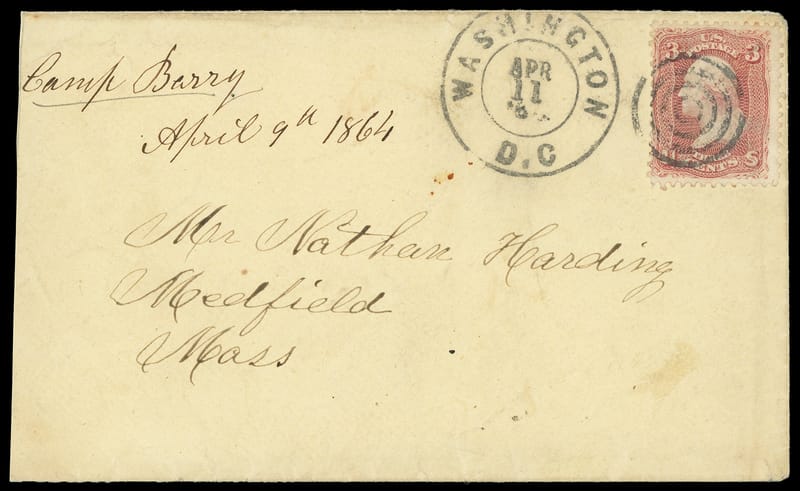 Camp Barry
April 9th 1864
WASHINGTON
APR
11
D.C
3 U.S. 3
POSTAGE
CENTS S
Mr Nathan Harding
Medfield
Mass